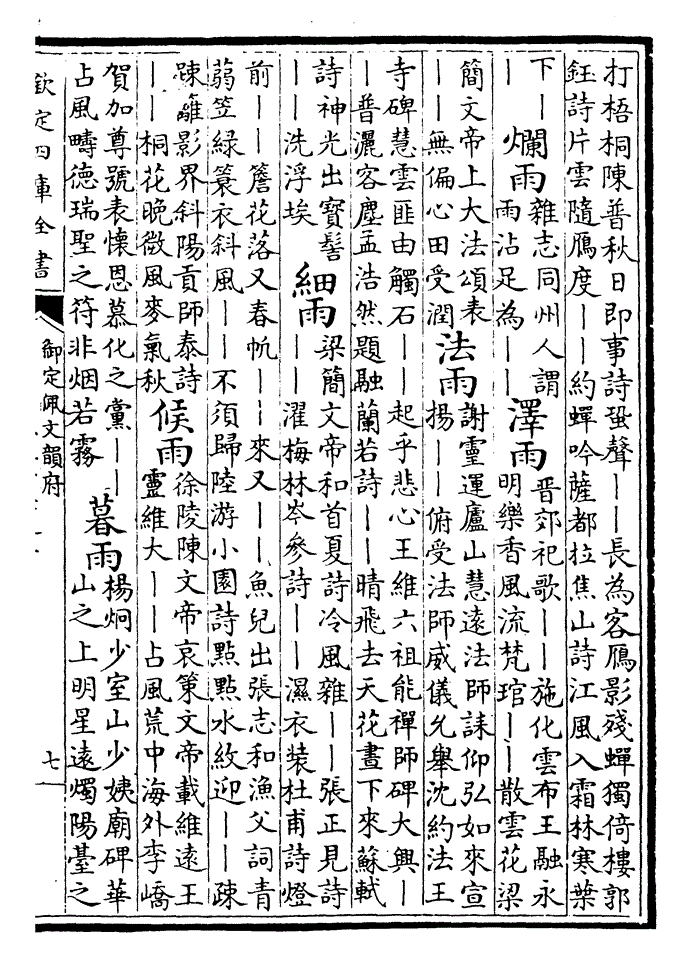 打梧桐陳普秋日即事詩蛩聲丨丨長為客鴈影殘蟬獨倚樓郭
鈺詩片雲隨鴈度丨丨約蟬吟薩都拉焦山詩江風入霜林寒葉
下丨
丨
爛雨
雜志同州人謂
雨沾足為丨丨
澤雨
晉郊祀歌丨丨施化雲布王融永
明樂香風流梵琯丨丨散雲花梁
簡文帝上大法頌表
丨丨無偏心田受潤
法雨
謝靈運廬山慧遠法師誄仰弘如來宣
揚丨丨俯受法師威儀允舉沈約法王
寺碑慧雲匪由觸石丨丨起乎悲心王維六祖能禪師碑大興丨
丨普灑客塵孟浩然題融蘭若詩丨丨晴飛去天花晝下來蘇軾
詩神光出寶髻
丨丨洗浮埃
細雨
梁簡文帝和首夏詩冷風雜丨丨張正見詩
丨丨濯梅林岑參詩丨丨濕衣裝杜甫詩燈
前丨丨簷花落又春帆丨丨來又丨丨魚兒出張志和漁父詞青
蒻笠綠簑衣斜風丨丨不須歸陸游小園詩點點水紋迎丨丨疎
踈籬影界斜陽貢師泰詩
丨丨桐花晚微風麥氣秋
候雨
徐陵陳文帝哀策文帝載維遠王
靈維大丨丨占風荒中海外李嶠
賀加尊號表懷恩慕化之黨丨丨
占風疇德瑞聖之符非烟若霧
暮雨
楊炯少室山少姨廟碑華
山之上明星遠燭陽臺之
欽定四庫全書
御定佩文韻府
七